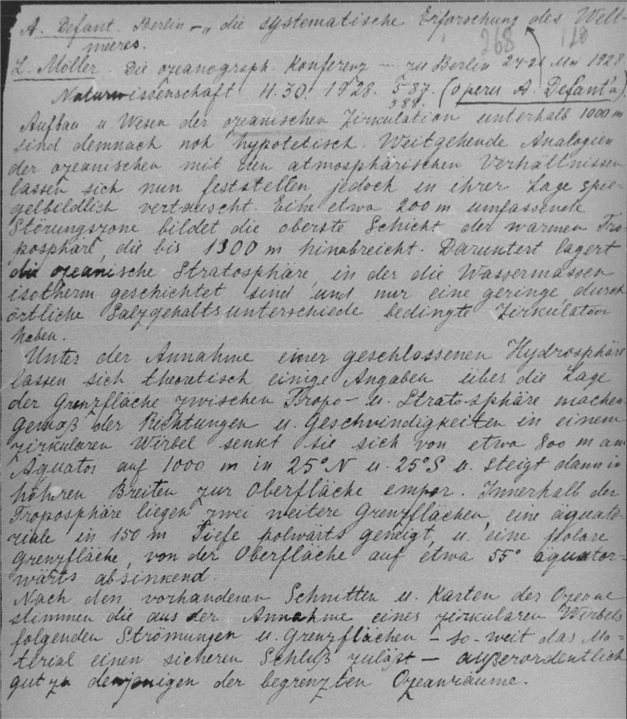 A. Defant. Berlin – „die systematische Erforschung des Welt-
meeres.
268 110
L. Möller. Die ozeanograph. Konferenz – zu Berlin 24-26 Mai 1928
Naturwissenschaft H. 30. 1928. 587. (operu A. Defant'a)
589.
Aufbau u. Wesen der ozeanischen Zirkulation unterhalb 1000 m
sind demnach noh hypotetisch. Weitgehende Analogien
der ozeanischen mit den atmosphärischen Verhältnissen
lassen sich nun feststellen, jedoch in ihrer Lage spie-
gelbildlich vertauscht. Eine etwa 200 m umfassende
Störungszone bildet die oberste Schicht der warmen Tro-
posphäre, die bis 1300 m hinabreicht. Daruntert lagert
die ozeanische Stratosphäre, in der die Wassermassen
isotherm geschichtet sind, und nur eine geringe, durch
örtliche Salzgehaltsunterschiede bedingte Zirkulation
haben.
Unter der Annahme einer geschlossenen Hydrosphäre
lassen sich theoretisch einige Angaben über die Lage
der Grenzfläche zwischen Tropo- u. Strato-sphäre machen
gemäß der Richtungen u. Geschwindigkeiten in einem
zirkularen Wirbel senkt sie sich von etwa 800 m am
Äquator auf 1000 m in 25° N u. 25° S u. steigt dann in
höheren Breiten zur Oberfläche empor. Innerhalb der
Troposphäre liegen zwei weitere Grenzflächen, eine äquato-
riale in 150 m Tiefe polwärts geneigt, u. eine polare
Grenzfläche, von der Oberfläche auf etwa 55° äquator-
wärts absinkend.
Nach den vorhandenen Schnitten u. Karten der Ozeane
stimmen die aus der Annahme eines zirkularen Wirbels
folgenden Strömungen u. Grenzflächen – so-weit das Ma-
terial einen sicheren Schluß zuläßt – außerordentlich
gut zu denjenigen der begrenzten Ozeanräume.